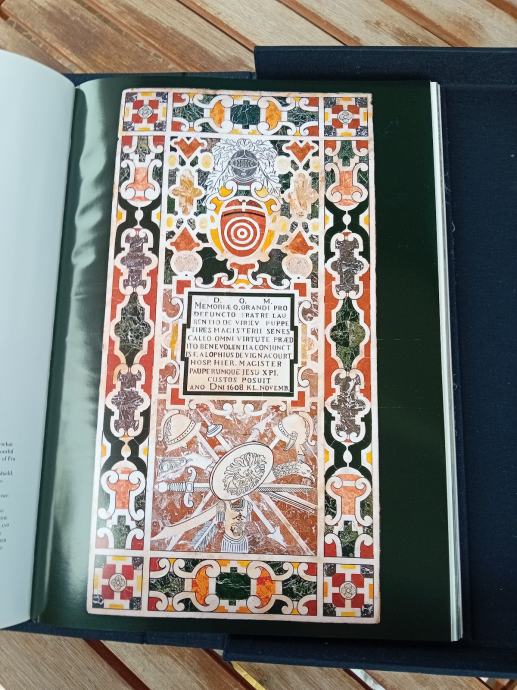 D. O. M.
MEMORIÆ Q. ORANDI PRO
DEFUNCTO FRATRE LAU
RENTIO DE VIRIEV PUPPE
TIRES MAGISTERII SENES
CALLO OMNI VIRTUTE PRÆD
ITO BENEVOLENTIA CONJUNCT
IS F. ALOPHIUS DE VIGNACOURT
HOSP. HIER. MAGISTER
PAUPERUMQUE JESU XPI.
CUSTOS POSUIT
ANO DNI 1608 KL. NOVEMB.
of Fra
shield,